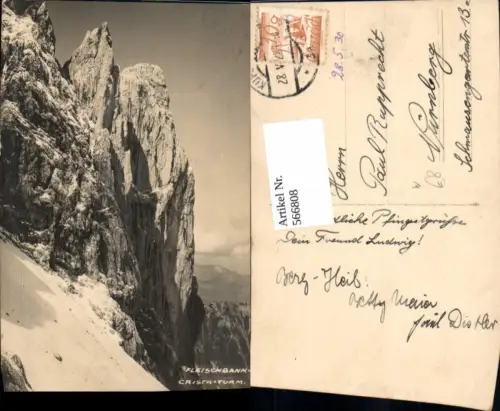 FLEISCHBANK-
CRISTA-TURM.
28.V.
28.5.30
Herrn
Paul Rupprecht
Nürnberg
Schmausengartenstr 13
68
Artikel Nr.
566808
Pfingstgrüße
Dein Freund Ludwig!
Berg-Heil!
Betty Maier